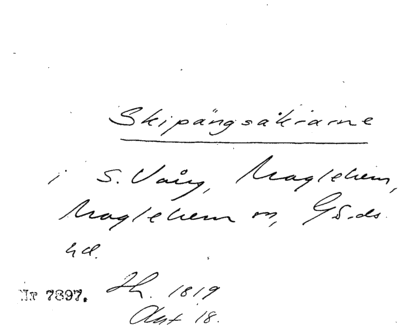 Skipängsåkrarne
i S. Vång, Maglehem,
Maglehem sn, Gärds
hd.
Nr 7897. Jh. 1819
Akt 18.